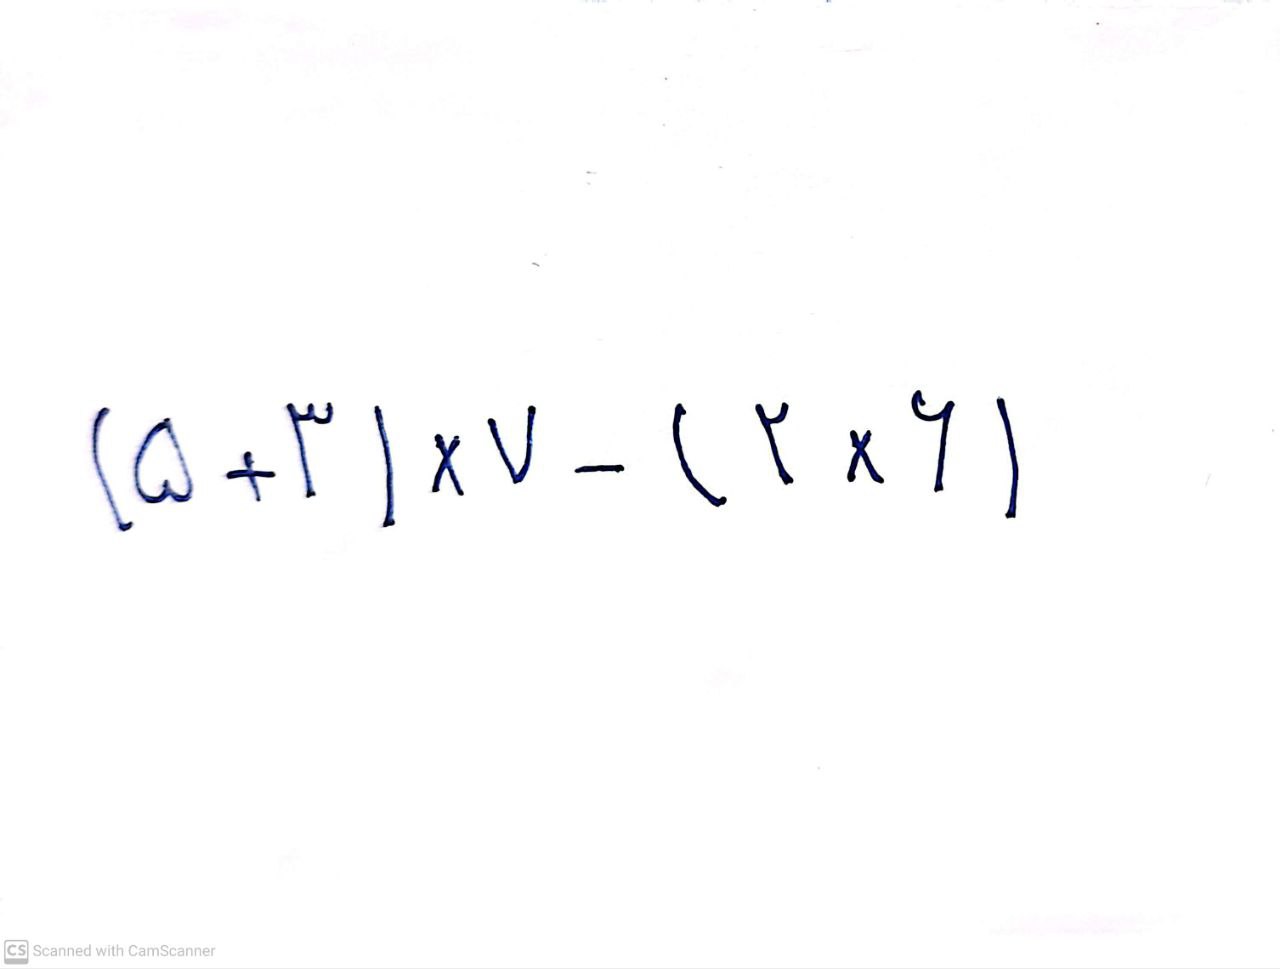 (۵+۳)×۷-(۲×۶)
CS Scanned with CamScanner